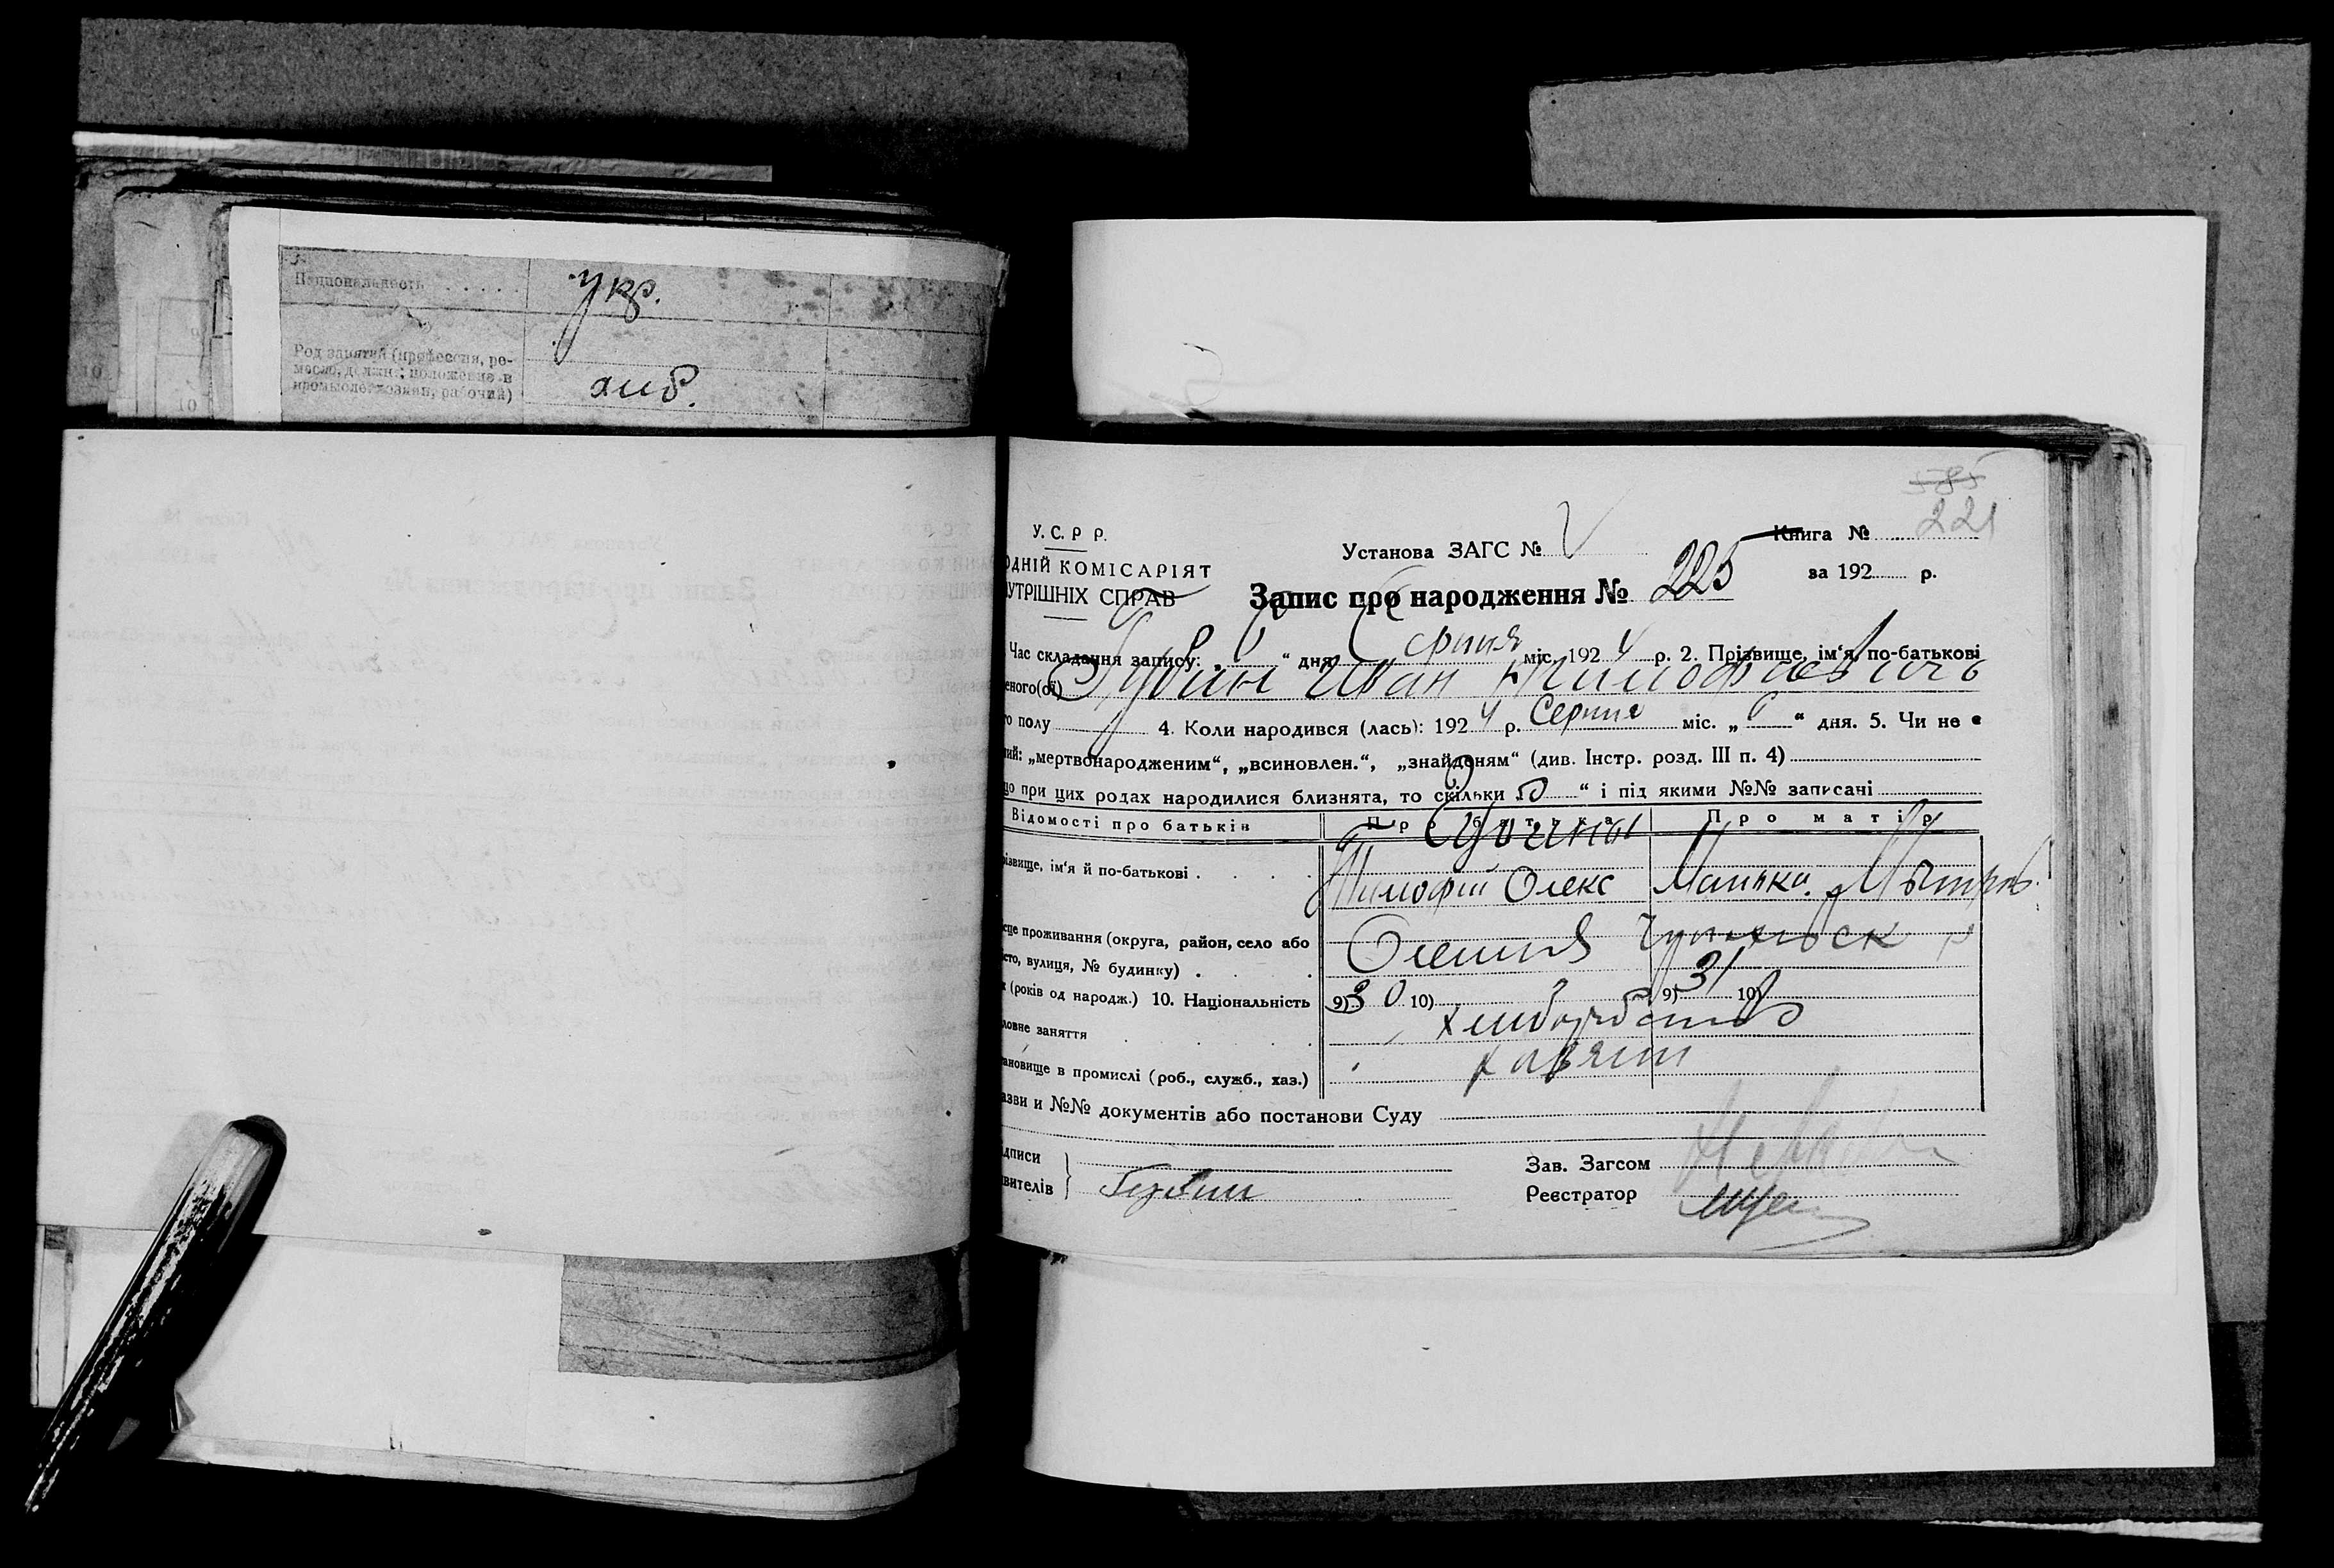 Национальность . . . . . укр.
Род занятий (профессия, ре-
месло, должн., положение в
промысле: хозяин, рабочий) хліб.
10
10
585
221
У.С.Р Р.
ОДНІЙ КОМІСАРІЯТ
УТРІШНІХ СПРАВ
Установа ЗАГС №
Книга №
за 192 р.
Запис про народження № 225
Час складання запису: „ “ дня Серпня міс. 1924 р. 2. Прізвище, ім‘я, по-батькові
еного(ої) Губин Иван Тимофаевичь
го полу 4. Коли народився (лась): 1924 р. Серпня міс. „6“ дня. 5. Чи не є
ий: „мертвонародженим“, „всиновлен.“, „знайденям“ (див. Інстр. розд. III п. 4)
що при цих родах народилися близнята, то скільки „ “ і під якими №№ записані
Відомості про батьків Про батька Про матір
Губины
різвище, ім‘я й по-батькові . . . . Тимофій Олекс
сце проживання (округа, район, село або
сто, вулиця, № будинку) . . .
к (років од народж.) 10. Національність 9) 30 10) 9) 31 10)
ловне заняття . . . .
тановище в промислі (роб., служб., хаз.)
азви и №№ документів або постанови Суду
дписи
явителів Губин
Зав. Загсом
Реєстратор